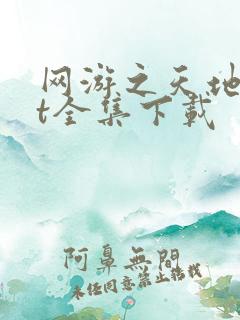 网游之天地
t全集下载
阿鼻無間
未经同意禁止转载